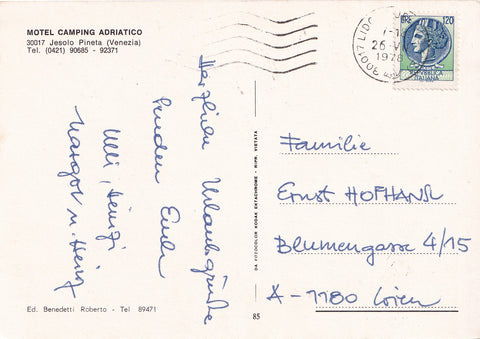 MOTEL CAMPING ADRIATICO
30017 Jesolo Pineta (Venezia)
Tel. (0421) 90685 - 92371
Herzliche Urlaubsgrüße
senden Euch
Ulli, Heinzi
Margot u. Heinz
Ed. Benedetti Roberto - Tel 89471
DA VIZOCOLOR KODAK EKTACHROME - RIPR. VIETATA
85
30017 LIDO
26
1978
120
REPVBBLICA
ITALIANA
Familie
Ernst HOFHANSL
Blumengasse 4/15
A - 1180 Wien